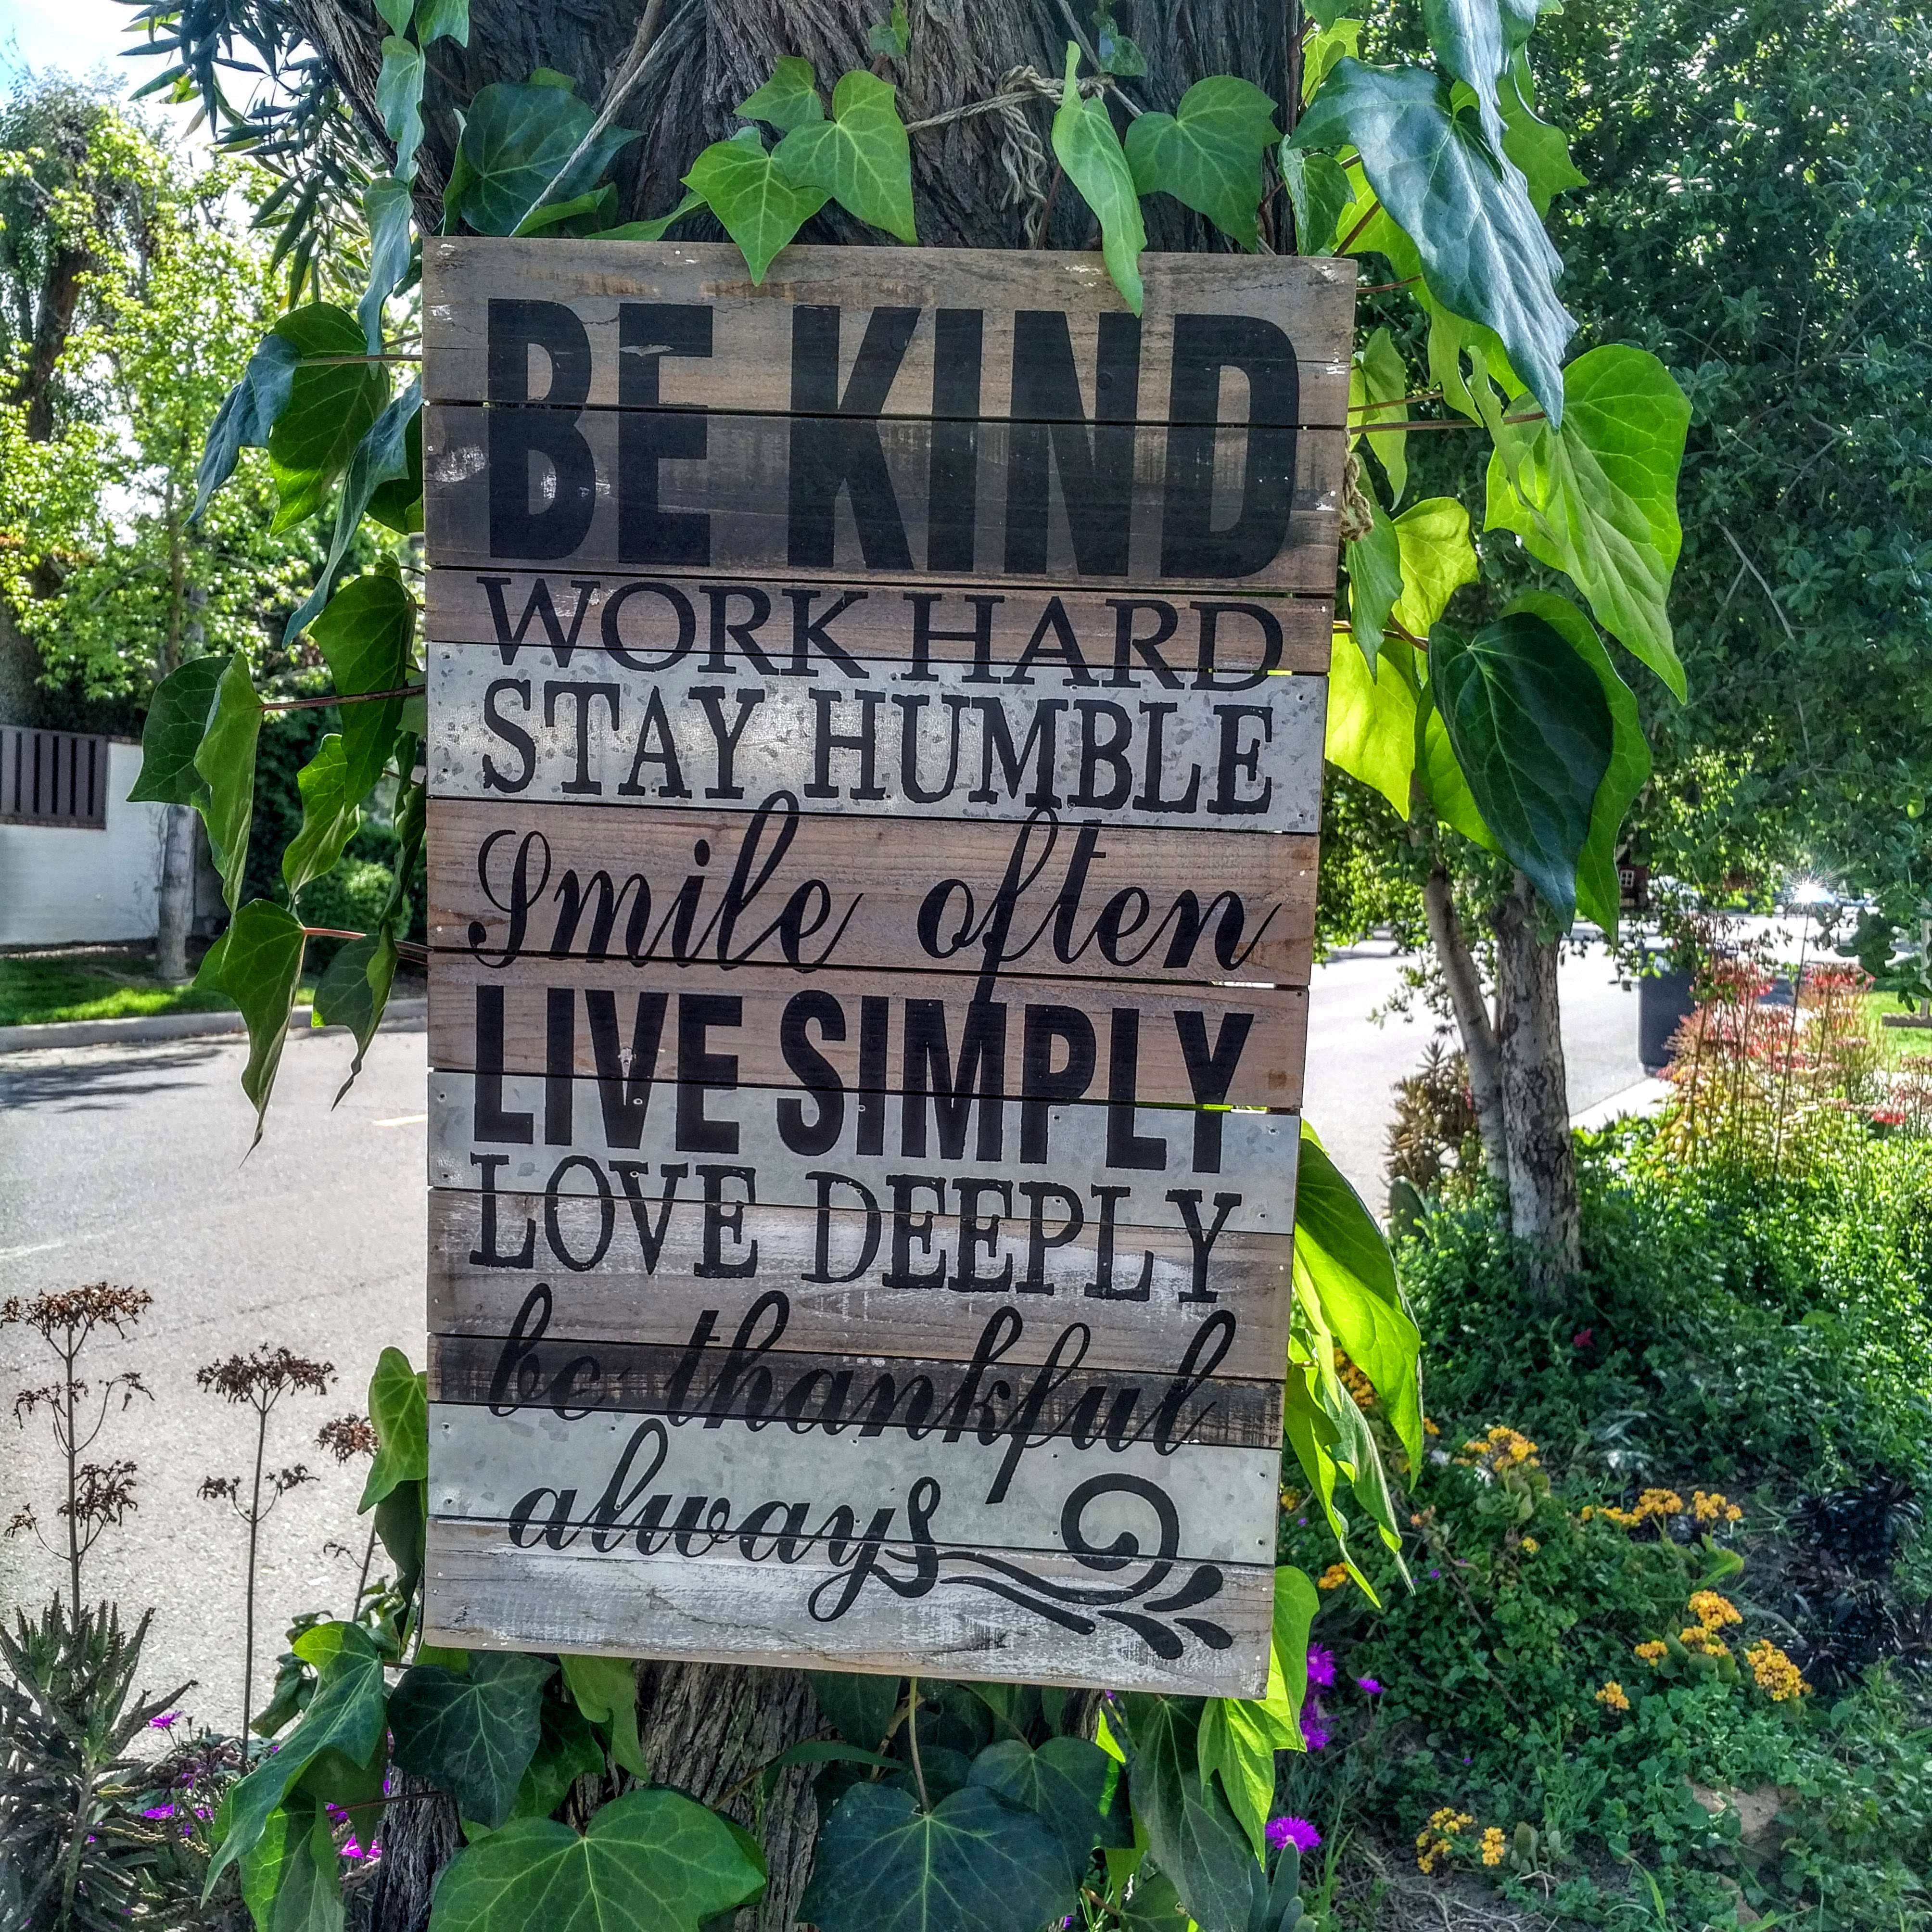 BE KIND
WORK HARD
STAY HUMBLE
Smile often
LIVE SIMPLY
LOVE DEEPLY
be thankful
always